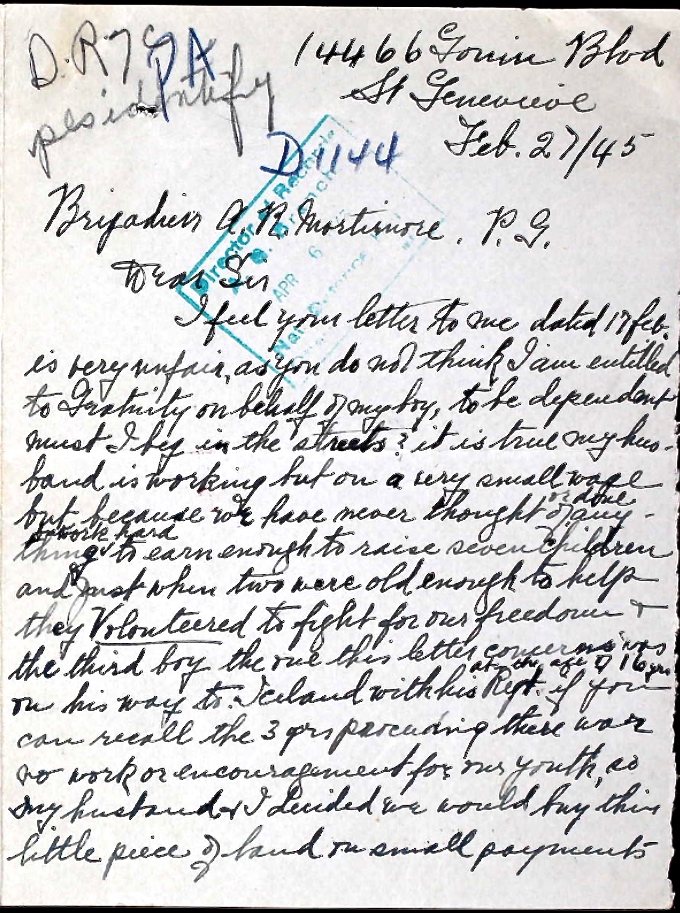 D.R
PA
14466 Gouin Blvd
St Genevieve
Feb. 27/45
D1144
Director of Records
Branch
APR 6
Nat. Defence
Brigadier A. R. Mortimore. P.G.
Dear Sir
I feel your letter to me dated 17 feb.
is very unfair, as you do not think I am entitled
to Gratuity on behalf of my boy, to be dependent
must I beg in the streets? it is true my hus-
band is working but on a very small wage
but because we have never thought of any-
or done
thing to earn enough to raise seven children
work hard
and just when two were old enough to help
they Volunteered to fight for our freedom +
the third boy the one this letter concerns was
on his way to Iceland with his Rgt. if you
at the age of 16 yrs
can recall the 3 yrs preceeding there was
no work or encouragement for our youth, so
my husband + I decided we would buy this
little piece of land on small payments